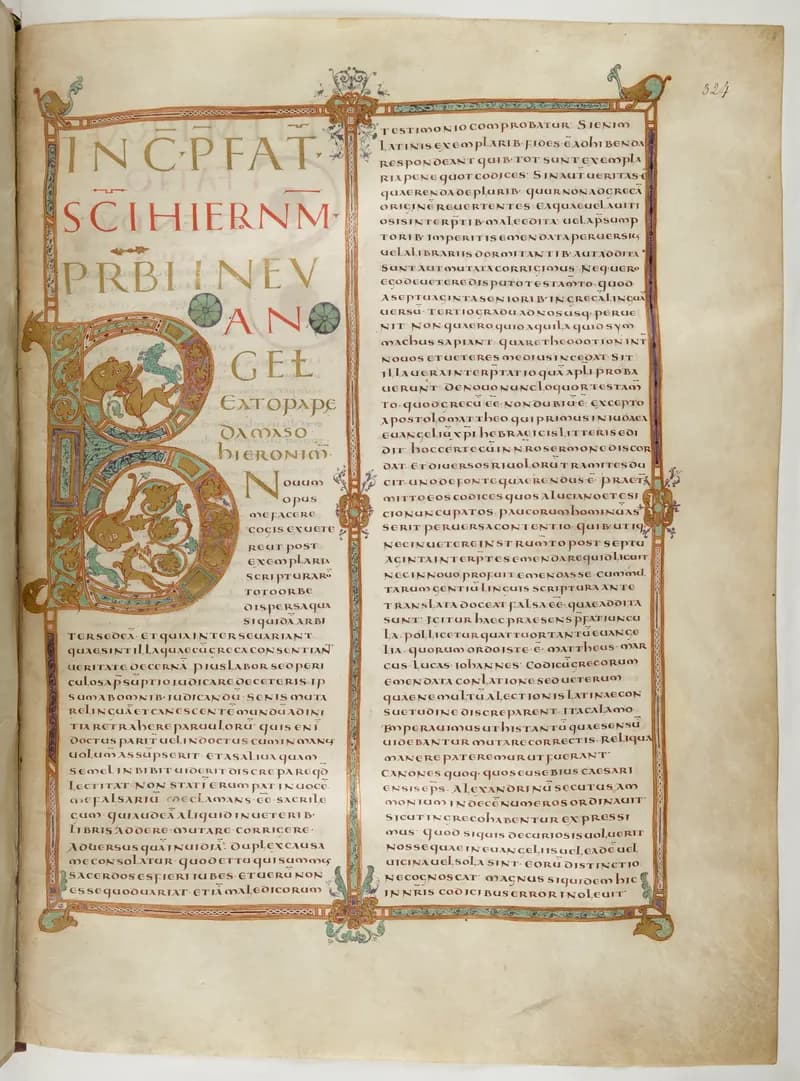 324
INC̄·P̄FAT̄·
SC̄I HIERNM̄·
PRB̄I IN EV
AN
GEŁ
B
EATO PAPE
DAMASO
HIERONIM̄·
NOUUM
OPUS
ME FACERE
COGIS EX UETE
RE UT POST
EXEMPLARIA
SCRIPTURAR
TOTO ORBE
DISPERSA QUA
SI QUIDĀ ARBI
TER SEDEĀ· ET QUIA INTER SE UARIANT
QUAE SINT ILLA QUAE CŪ GRECA CONSENTIAN̄
UERITATE DECERNĀ PIUS LABOR SED PERI
CULOSA P̄SUPTIO IUDICARE DE CETERIS· IP
SUM AB OMNIB· IUDICANDŪ· SENIS MUTA
RE LINGUĀ ET CANESCENTĒ MUNDŪ AD INI
TIA RETRAHERE PARUULORŪ· QUIS ENI
DOCTUS PARIT̄ UEL INDOCTUS CUM IN MANUS
UOLUM ASSŪPSERIT· ET A SALIUA QUAM
SEMEL INBIBIT UIDERIT DISCREPARE QD̄
LECTITAT NON STATĪ ERUMPAT IN UOCĒ
ME FALSARIŪ ME CLAMANS EĒ SACRILE
GUM QUI AUDEĀ ALIQUID IN UETERIB·
LIBRIS ADDERE MUTARE CORRIGERE·
ADUERSUS QUĀ INUIDIĀ· DUPLEX CAUSA
ME CONSOLATUR QUOD ET TU QUI SUMMUS
SACERDOS ES FIERI IUBES· ET UERŪ NON
ESSE QUOD UARIAT· ETIĀ MALEDICORUM
TESTIMONIO COMPROBATUR· SI ENIM
LATINIS EXEMPLARIB· FIDES Ē ADHIBENDA
RESPONDEANT QUIB· TOT SUNT EXEMPLA
RIA PENE QUOT CODICES· SIN AUT̄ UERITAS Ē
QUAERENDA DE PLURIB· QUUR NON AD GRECĀ
ORIGINĒ REUERTENTES· EA QUAE UEL A UITI
OSIS INTERP̄TIB· MALE EDITA· UEL A P̄SUMP
TORIB· IMPERITIS EMENDATA PERUERSIUS
UEL A LIBRARIIS DORMITANTIB· AUT ADDITA
SUNT AUT MUTATA CORRIGIMUS· NEQ UERO
EGO DE UETERE DISPUTO TESTAM̄TO· QUOD
A SEPTUAGINTA SENIORIB· IN GRECĀ LINGUĀ
UERSŪ· TERTIO GRADU AD NOS USQ· PERUE
NIT· NON QUAERO QUID AQUILA QUID SYM
MACHUS SAPIANT· QUARE THEODOTION INT̄
NOUOS ET UETERES MEDIUS INCEDAT· SIT
ILLA UERA INTERP̄TATIO QUĀ AP̄LI PROBA
UERUNT· DE NOUO NUNC LOQUOR TESTAM̄
TO· QUOD GRECŪ EĒ NON DUBIŪ Ē· EXCEPTO
APOSTOLO MATTHEO QUI PRIMUS IN IUDAEA
EUANGELIŪ XP̄I HEBRAICIS LITTERIS EDI
DIT· HOC CERTE CŪ IN NR̄O SERMONE DISCOR
DAT· ET DIUERSOS RIUULORŪ TRAMITES DU
CIT· UNO DE FONTE QUAERENDUS Ē· PRAET̄
MITTO EOS CODICES QUOS A LUCIANO ET ESI
CIO NUNCUPATOS· PAUCORUM HOMINUM AS
SERIT PERUERSA CONTENTIO· QUIB· UTIQ
NEC IN UETERE INSTRUM̄TO POST SEPTU
AGINTA INTERP̄TES EMENDARE QUID LICUIT·
NEC IN NOUO PROFUIT EMENDASSE· CUM MUL
TARUM GENTIŪ LINGUIS SCRIPTURA ANTE
TRANSLATA DOCEAT FALSA EĒ· QUAE ADDITA
SUNT· IGITUR HAEC PRAESENS P̄FATIUNCU
LA· POLLICETUR QUATTUOR TANTŪ EUANGE
LIA· QUORUM ORDO ISTE Ē· MATTHEUS· MAR
CUS· LUCAS· IOHANNES· CODICŪ GRECORUM
EMENDATA CONLATIONE SED UETERUM
QUAE NE MULTŪ A LECTIONIS LATINAE CON
SUETUDINE DISCREPARENT· ITA CALAMO
IMPERAUIMUS UT HIS TANTŪ QUAE SENSŪ
UIDEBANTUR MUTARE CORRECTIS· RELIQUA
MANERE PATEREMUR UT FUERANT·
CANONES QUOQ· QUOS EUSEBIUS CAESARI
ENSIS EP̄S· ALEXANDRINŪ SECUTUS AM
MONIUM IN DECĒ NUMEROS ORDINAUIT·
SICUT IN GRECO HABENTUR EXPRESSI
MUS· QUOD SI QUIS DE CURIOSIS UOLUERIT
NOSSE QUAE IN EUANGELIIS UEL EADĒ UEL
UICINA UEL SOLA SINT· EORŪ DISTINCTIO
NE COGNOSCAT· MAGNUS SIQUIDEM HIC
IN NR̄IS CODICIBUS ERROR INOLEUIT·